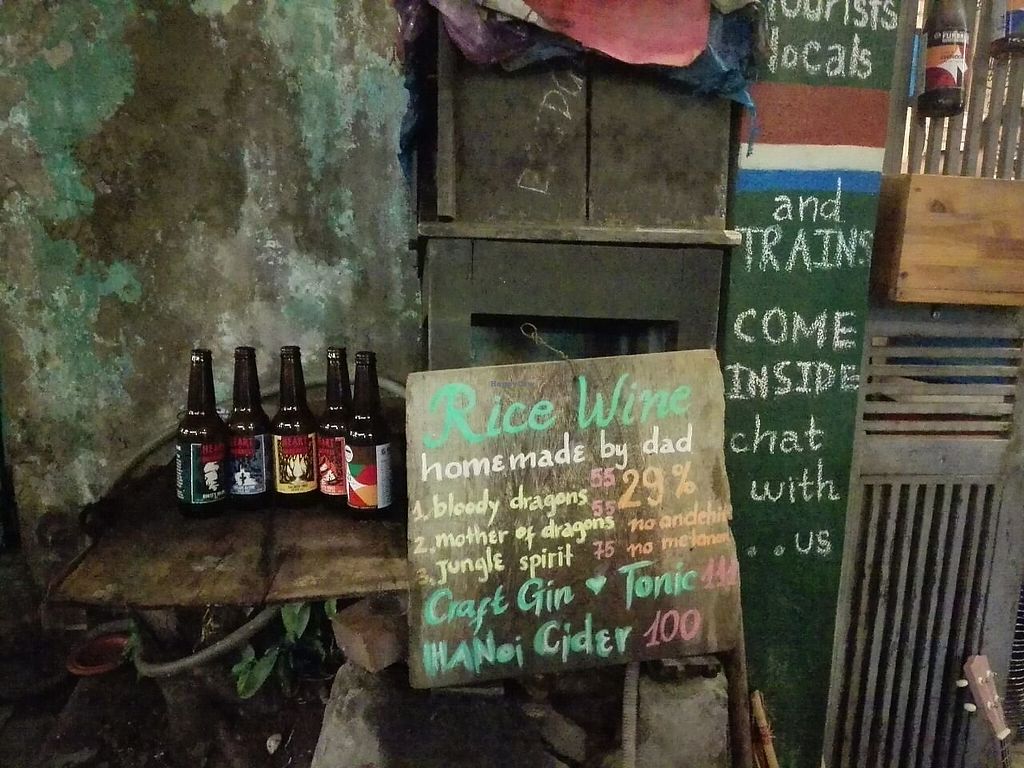 Rice Wine
homemade by dad
1. bloody dragons 55 29%
2. mother of dragons 55
3. jungle spirit 75 no
Craft Gin ♥ Tonic
HANoi Cider 100
tourists
locals
and
TRAINS
COME
INSIDE
chat
with
...us
HEART
HEART
HEART
HEART
HappyCow